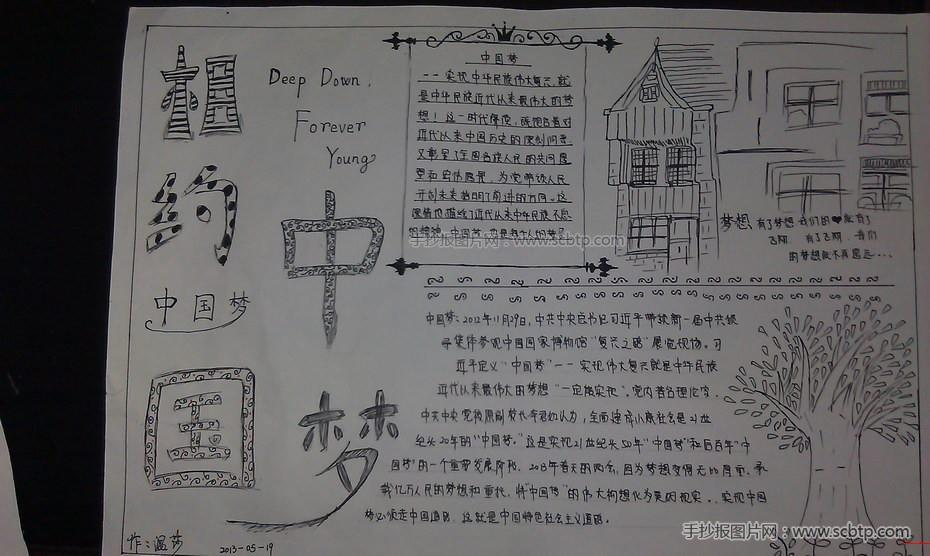 相约
中国梦
Deep Down,
Forever
Young
中国梦
中国梦
——实现中华民族伟大复兴,就
是中华民族近代以来最伟大的梦
想!这一时代解读,既饱含着对
近代以来中国历史的深刻洞悉,
又彰显了全国各族人民的共同愿
望和宏伟愿景,为党带领人民
开创未来指明了前进的方向。这
深情地描绘了近代以来中华民族
手抄报图片网:www.scbtp.com
梦想,有了梦想,我们的 就有了
飞翔,有了飞翔,我们
的梦想就不再遥远...
中国梦:2012年11月29日,中共中央总书记习近平带领新一届中共领
导集体参观中国国家博物馆“复兴之路”展览现场。习
近平定义“中国梦”——实现伟大复兴就是中华民族
近代以来最伟大的梦想“一定能实现”。党内著名理论家、
中共中央党校原副校长李君如认为,全面建成小康社会是21世
纪头20年的“中国梦”。这是实现21世纪头50年“中国梦”和后百年“中
国梦”的一个重要发展阶段。2013年春天的两会,因为梦想变得无比厚重,承
载亿万人民的梦想和重托,将“中国梦”的伟大构想化为美的现实。实现中国
梦必须走中国道路,这就是中国特色社会主义道路。
作:温莎
2013-05-19
手抄报图片网:www.scbtp.com